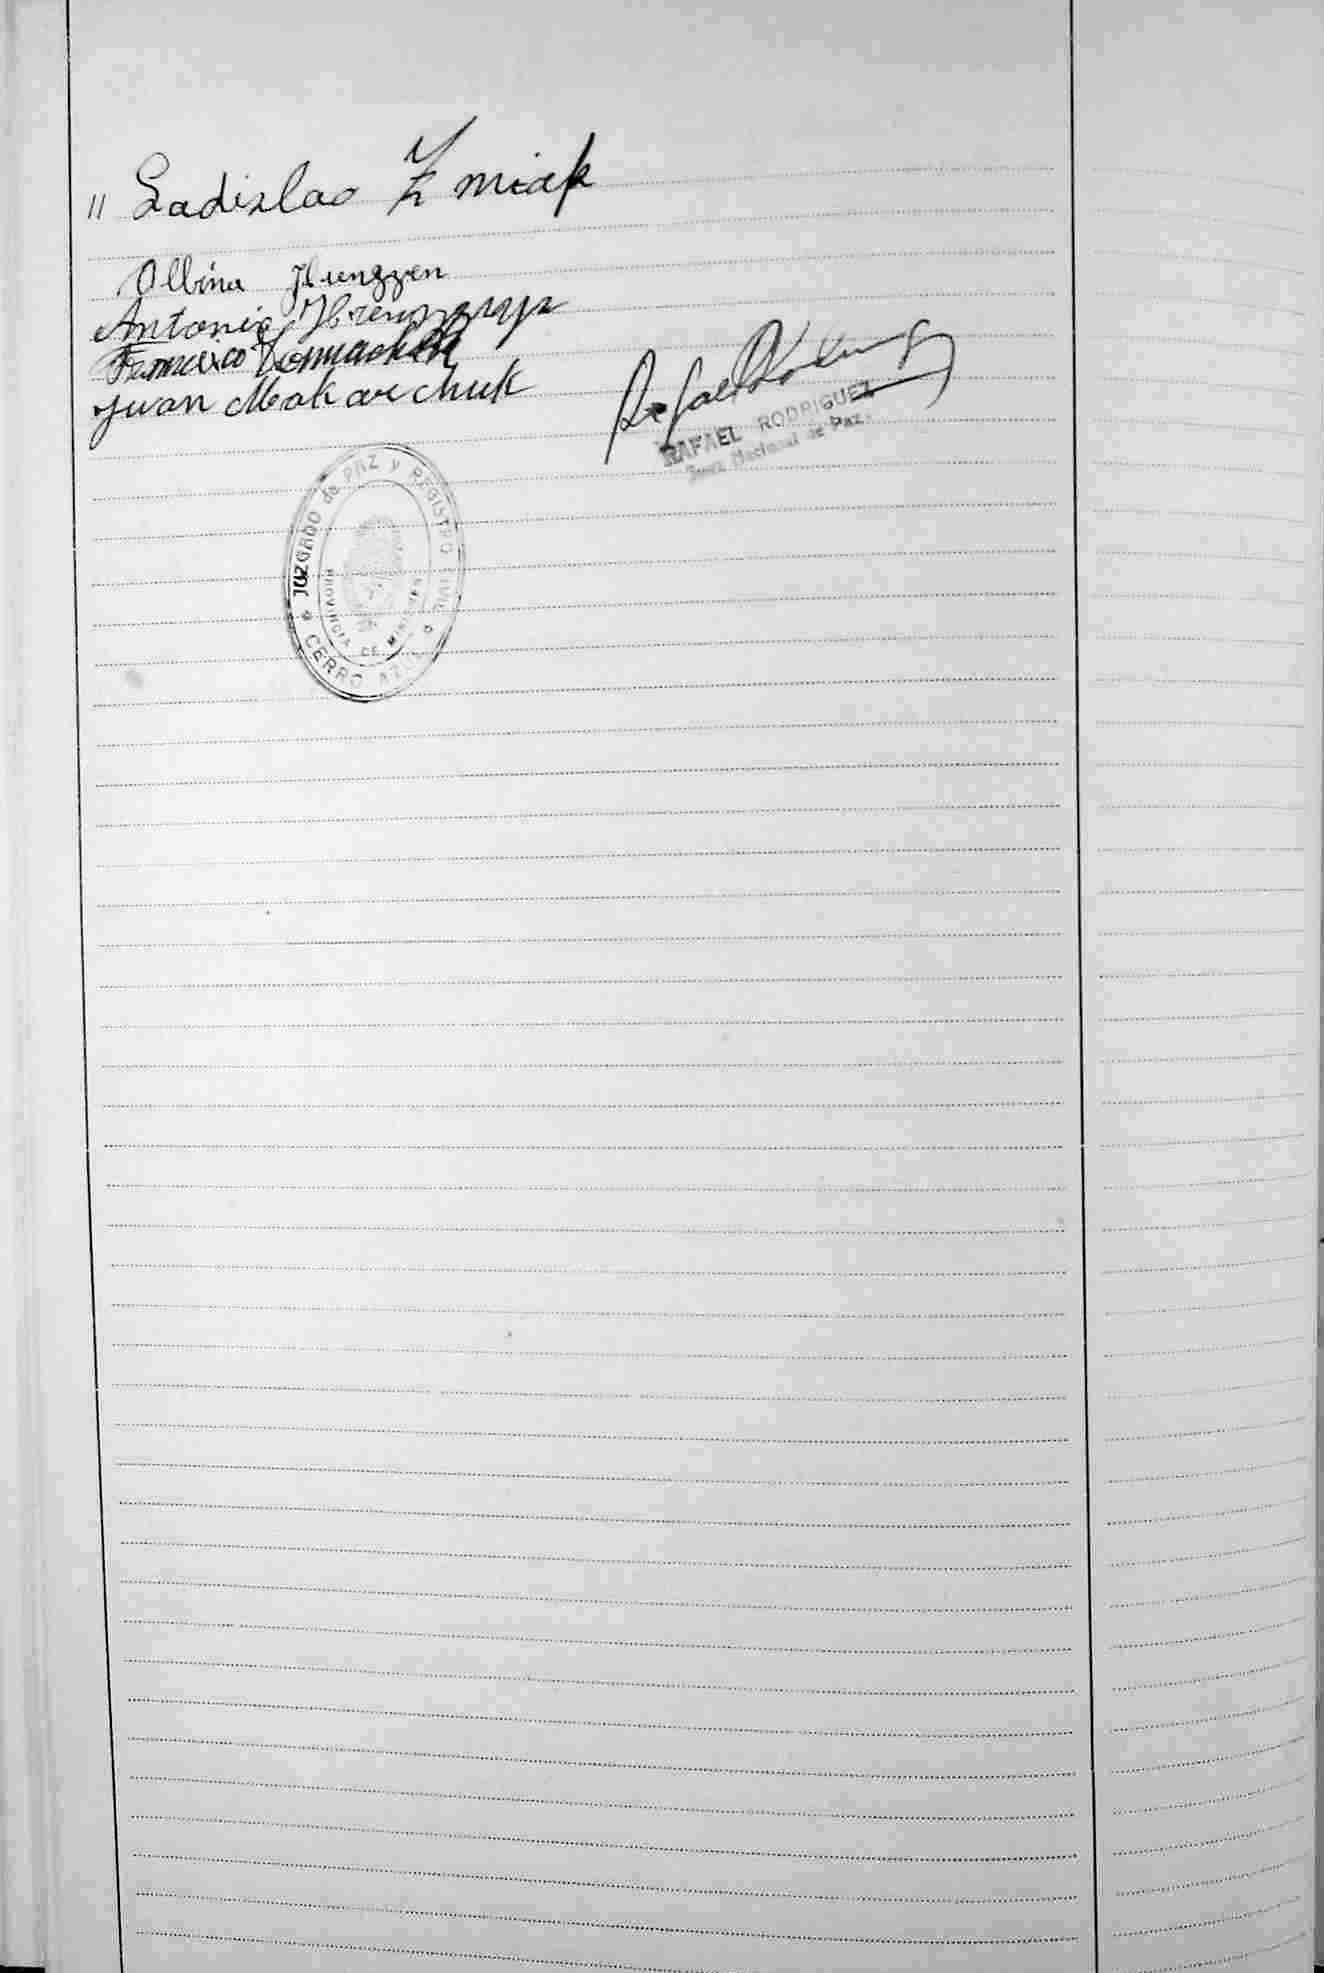 " Ladislao Zmiak
Olbina
Antonio
Francisco
Juan Makarchuk
Rafael Rodriguez
RAFAEL RODRIGUEZ
Juez Nacional de Paz.
JUZGADO de PAZ y REGISTRO CIVIL
PROVINCIA DE MISIONES
CERRO AZUL